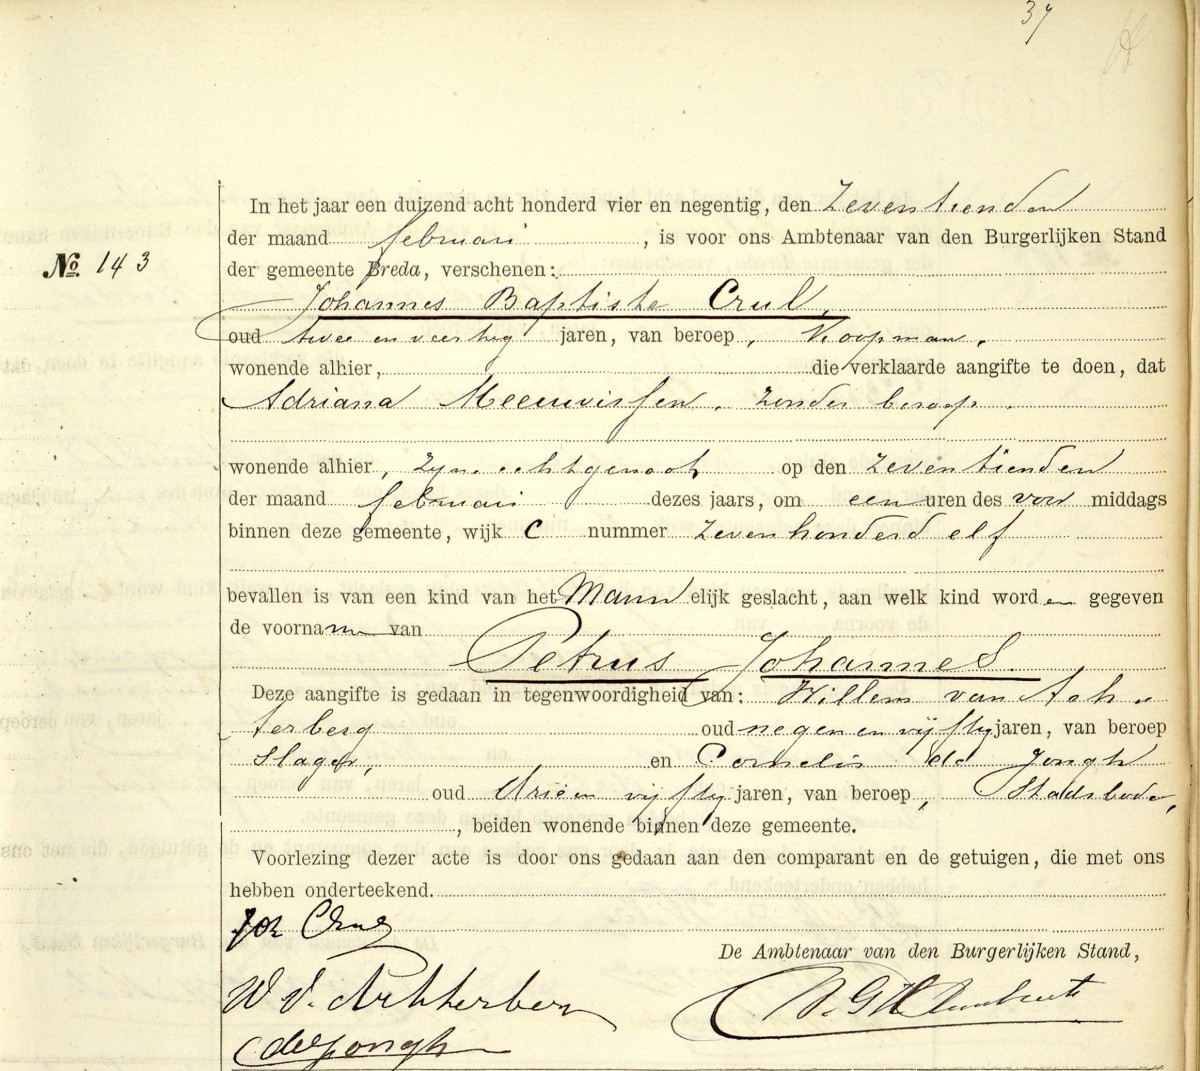 37
In het jaar een duizend acht honderd vier en negentig, den Zeventienden
der maand februari, is voor ons Ambtenaar van den Burgerlijken Stand
№ 143
der gemeente Breda, verschenen:
Johannes Baptiste Crul,
oud twee en veertig jaren, van beroep, Koopman,
wonende alhier, die verklaarde aangifte te doen, dat
Adriana Meeuwissen, zonder beroep,
wonende alhier, zijne echtgenoot op den zeventienden
der maand februari dezes jaars, om een uren des voor middags
binnen deze gemeente, wijk C nummer zevenhonderd elf
bevallen is van een kind van het Mannelijk geslacht, aan welk kind worden gegeven
de voornamen van
Petrus Johannes.
Deze aangifte is gedaan in tegenwoordigheid van: Willem van Ach-
terberg oud negen en vijftig jaren, van beroep
Slager, en Cornelis de Jongh
oud drie en vijftig jaren, van beroep, Stadsbode,
, beiden wonende binnen deze gemeente.
Voorlezing dezer acte is door ons gedaan aan den comparant en de getuigen, die met ons
hebben onderteekend.
Joh Crul
De Ambtenaar van den Burgerlijken Stand,
W v. Achterberg
C de Jongh